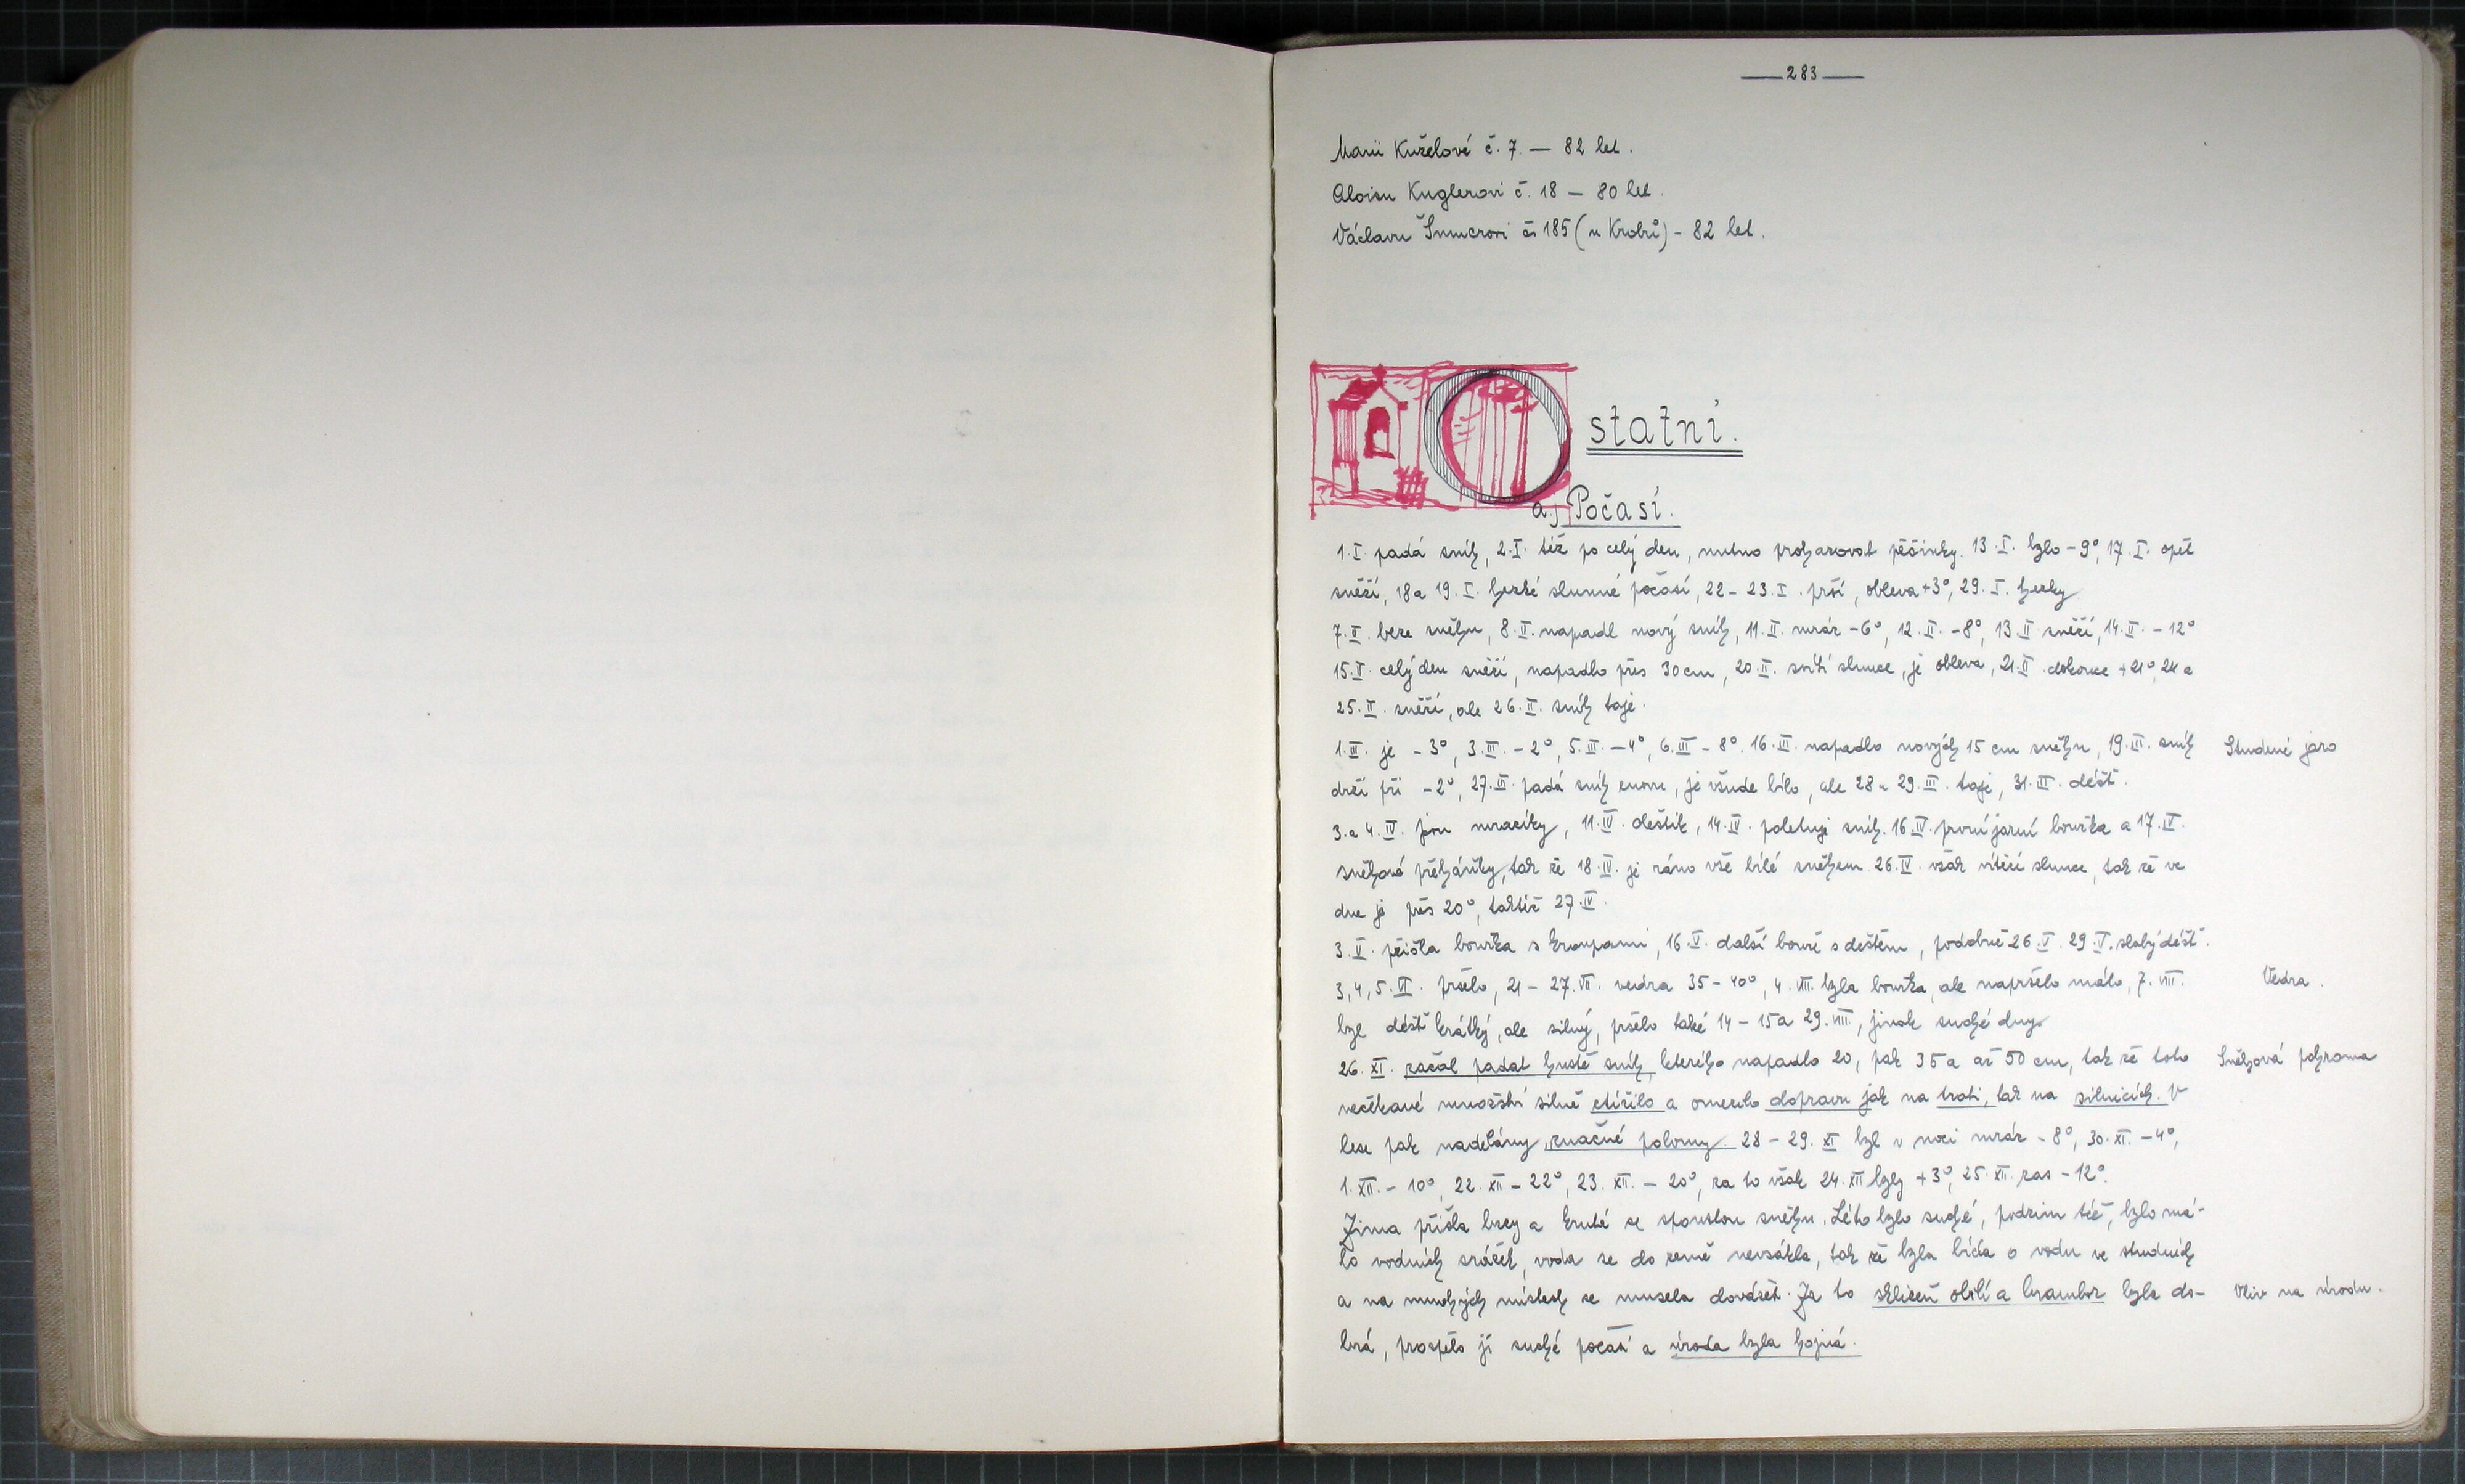 283
Marii Kuželové č. 7. — 82 let.
Aloisu Kuglerovi č. 18 — 80 let.
Václavu Šmucrovi čs 185 (u Krobů) - 82 let.
Ostatní.
a.) Počasí.
1. I. padá sníh, 2. I. též po celý den, nutno prohazovat pěšinky. 13. I. bylo -9°, 17. I. opět
sněží, 18 a 19. I. hezké slunné počasí, 22 - 23. I. prší, obleva +3°, 29. I. hezky
7. II. beze sněhu, 8. II. napadl nový sníh, 11. II. mráz -6°, 12. II. -8°, 13. II sněží, 14. II. - 12°
15. II. celý den sněží, napadlo přes 30 cm, 20. II. svítí slunce, je obleva, 21. II. dokonce +21°, 24 a
25. II. sněží, ale 26. II. sníh taje.
1. III. je - 3°, 3. III. - 2°, 5. III. — 4°, 6. III - 8°. 16. III. napadlo nových 15 cm sněhu, 19. III. sníh
Studené jaro
drží při -2°, 27. III. padá sníh znovu, je všude bílo, ale 28 a 29. III. taje, 31. III. déšť.
3. a 4. IV. jsou mrazíky, 11. IV. deštík, 14. IV. poletuje sníh. 16. IV. první jarní bouřka a 17. IV.
sněhové přeháňky, tak že 18. IV. je ráno vše bílé sněhem. 26. IV. však vítězí slunce, tak že ve
dne je přes 20°, taktéž 27. IV.
3. V. přišla bouřka s kroupami, 16. V. další bouře s deštěm, podobně 26. V. 29. V. slabý déšť.
3, 4, 5. VI. pršelo, 21 - 27. VII. vedra 35 - 40°, 4. VIII. byla bouřka, ale napršelo málo, 7. VIII.
Vedra.
byl déšť krátký, ale silný, pršelo také 14 - 15 a 29. VIII, jinak suché dny.
26. XI. začal padat hustě sníh, kterého napadlo 20, pak 35 a až 50 cm, tak že toto
Sněhová pohroma
nečekané množství silně ztížilo a omezilo dopravu jak na trati, tak na silnicích. V
lese pak nadělány značné polomy. 28 - 29. XI byl v noci mráz - 8°, 30. XI. - 4°,
1. XII. - 10°, 22. XII - 22°, 23. XII. - 20°, za to však 24. XII byly +3°, 25. XII. zas - 12°.
Zima přišla brzy a krutě se spoustou sněhu. Léto bylo suché, podzim též, bylo má-
lo vodních srážek, voda se do země nevsákla, tak že byla bída o vodu ve studních
a na mnohých místech se musela dovážet. Za to sklizeň obilí a brambor byla do-
Vliv na úrodu.
brá, prospělo jí suché počasí a úroda byla hojná.